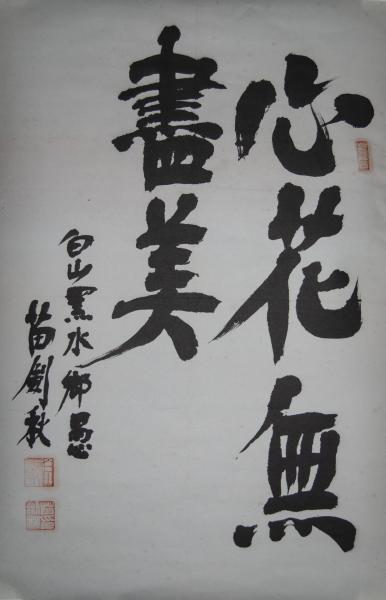 心花無
盡美
白山黑水鄉愚
苗劍秋